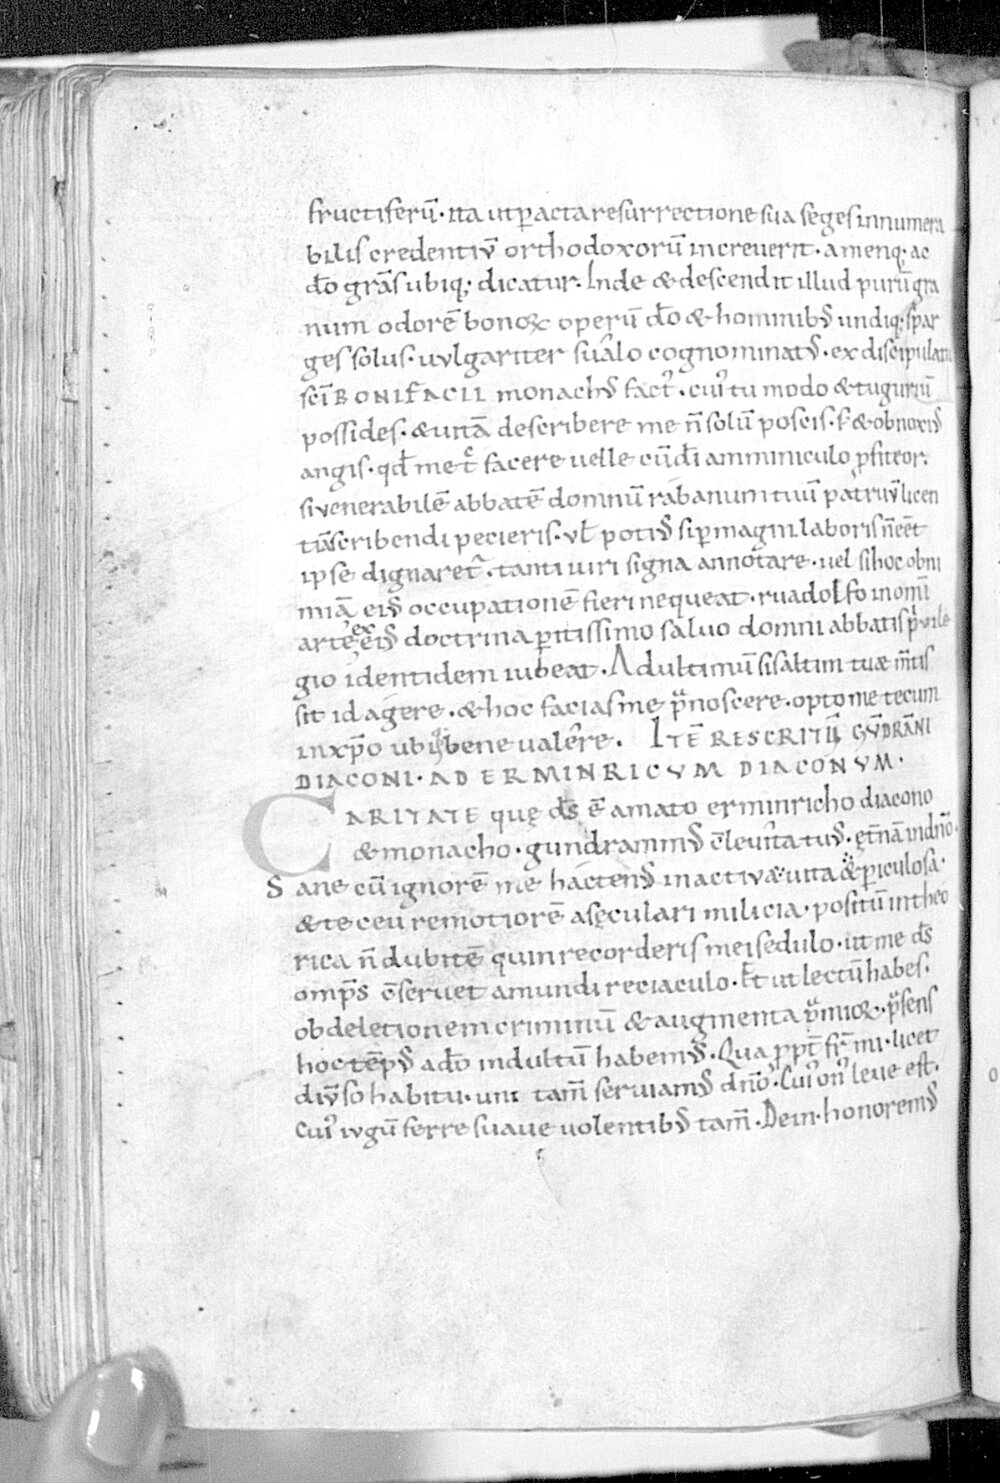 fructiferū· ita ut pacta resurrectione sua seges innumera
bilis credentiū orthodoxorū increuerit· amenq; ac
do grās ubiq; dicatur· Inde & descendit illud purū gra
num odorē bonoꝝ operū do & hominibꝰ undiq; spar
ges solus· uulgariter sualo cognominatꝰ· ex discipulatu
scī BONIFACII monachꝰ fact᾽· cui᾽ tu modo & tuguriū
possides· & uitā describere me ñ solū poscis· & obnoxiꝰ
angis· qđ me facere uelle cū amminiculo ꝓfiteor·
si uenerabilē abbatē domnū rabanum tuū patruū licen
tiā scribendi pecieris· uł potiꝰ si p magni laboris ñ eēt
ipse dignaret᾽· tanti uiri signa annotare· uel si hoc obni
miā eiꝰ occupationē fieri nequeat· ruadolfo in omī
arte ex eiꝰ doctrina pitissimo saluo domni abbatis puile
gio identidem iubeat· Ad ultimū si saltim tuæ m̄tis
sit id agere· & hoc facias me p̄noscere· opto me tecum
in xp̄o ubi bene ualere· ITĒ RESCRITŪ GŪDRĀNI
DIACONI· AD ERMINRICUM DIACONUM·
CARITATE quę dꝰs ē amato erminricho diacono
& monacho· gundrammꝰ leuita tuꝰ· ęt̄nā in dn̄o·
Sane cū ignorē me hactenꝰ in actiuæ uita & piculosa·
& te ceu remotiorē a sęculari milicia· positū in theo
rica ñ dubitē quin recorderis mei sedulo· ut me dꝰs
omp̄s c̄seruet a mundi reciaculo· Et ut lectū habes·
ob deletionem criminū & augmenta p̄mioꝝ· p̄sens
hoc tēpꝰ a do indultū habemꝰ· Qua ppt̄ fr̄ mi· licet
diūso habitu· uni tam̄ seruiamꝰ dn̄o· Cui᾽ on᾽ leue est·
cui᾽ iugū ferre suaue uolentibꝰ tam̄· Dein· honoremꝰ